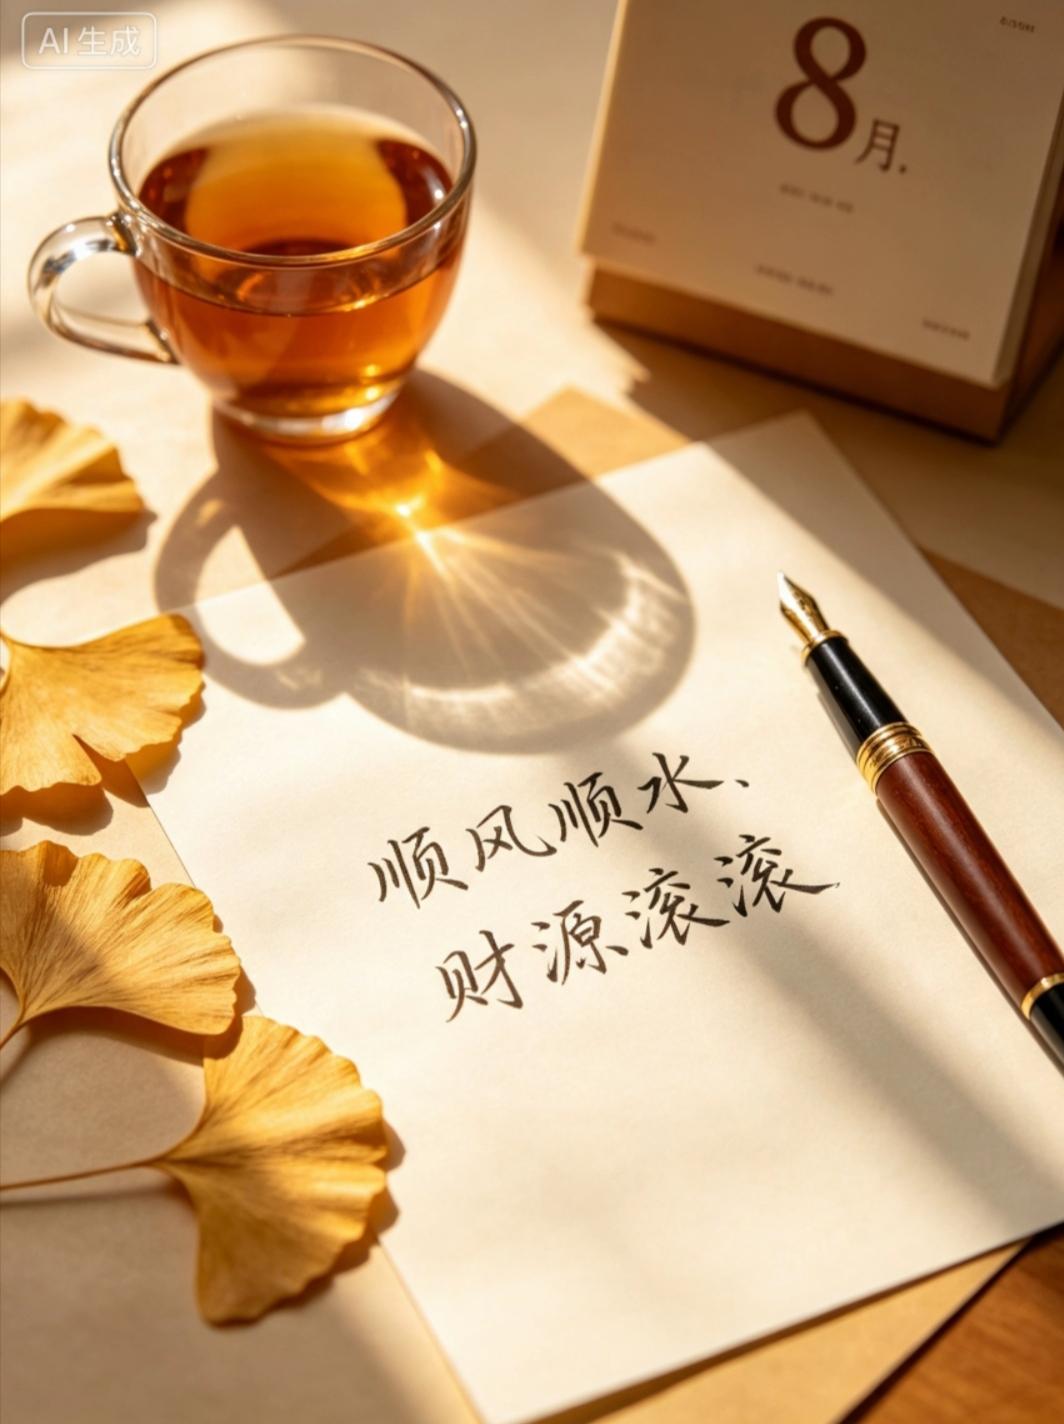 AI生成
8月.
顺风顺水、
财源滚滚